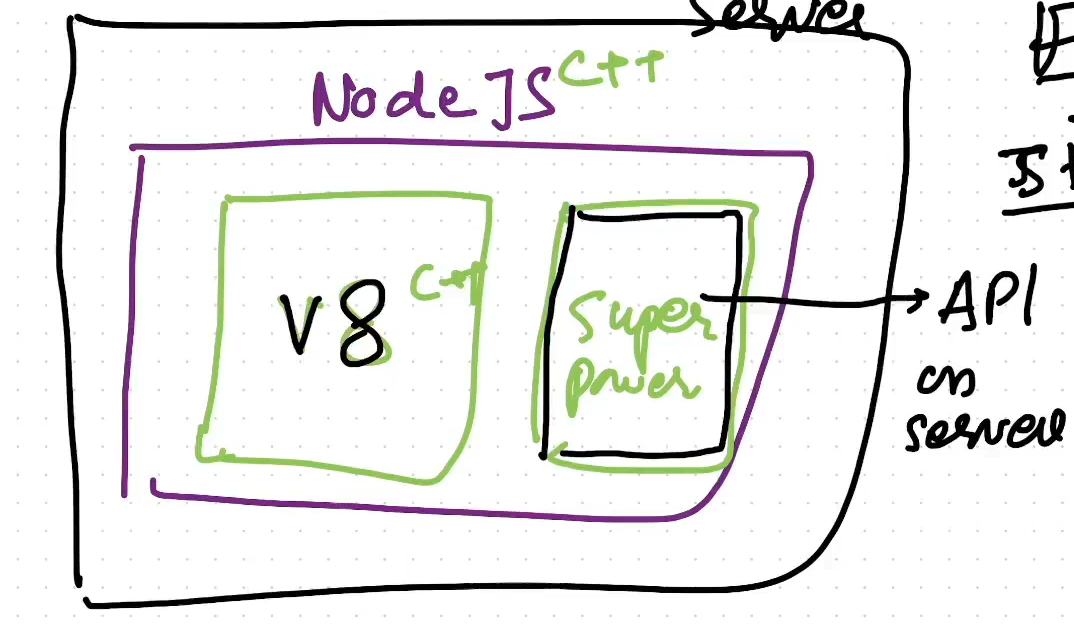 Server
Node JS C++
V8 C++
Super
power
API
on
server
JS